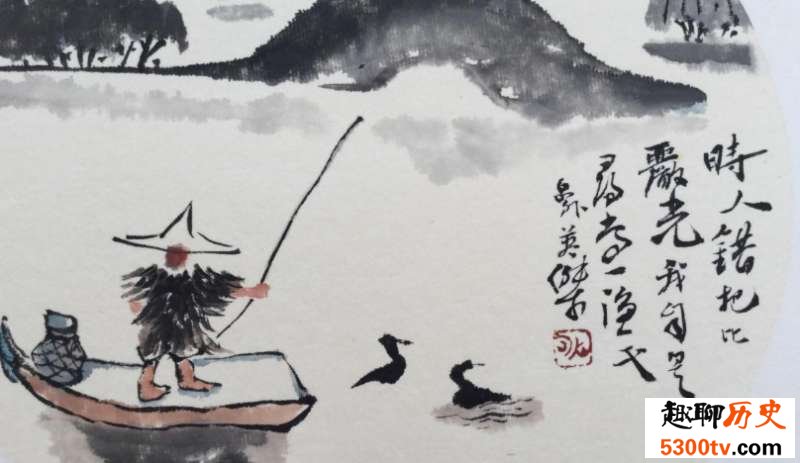 時人錯把比
嚴光我自是
尋常一漁父
英傑
趣聊历史
5300tv.com